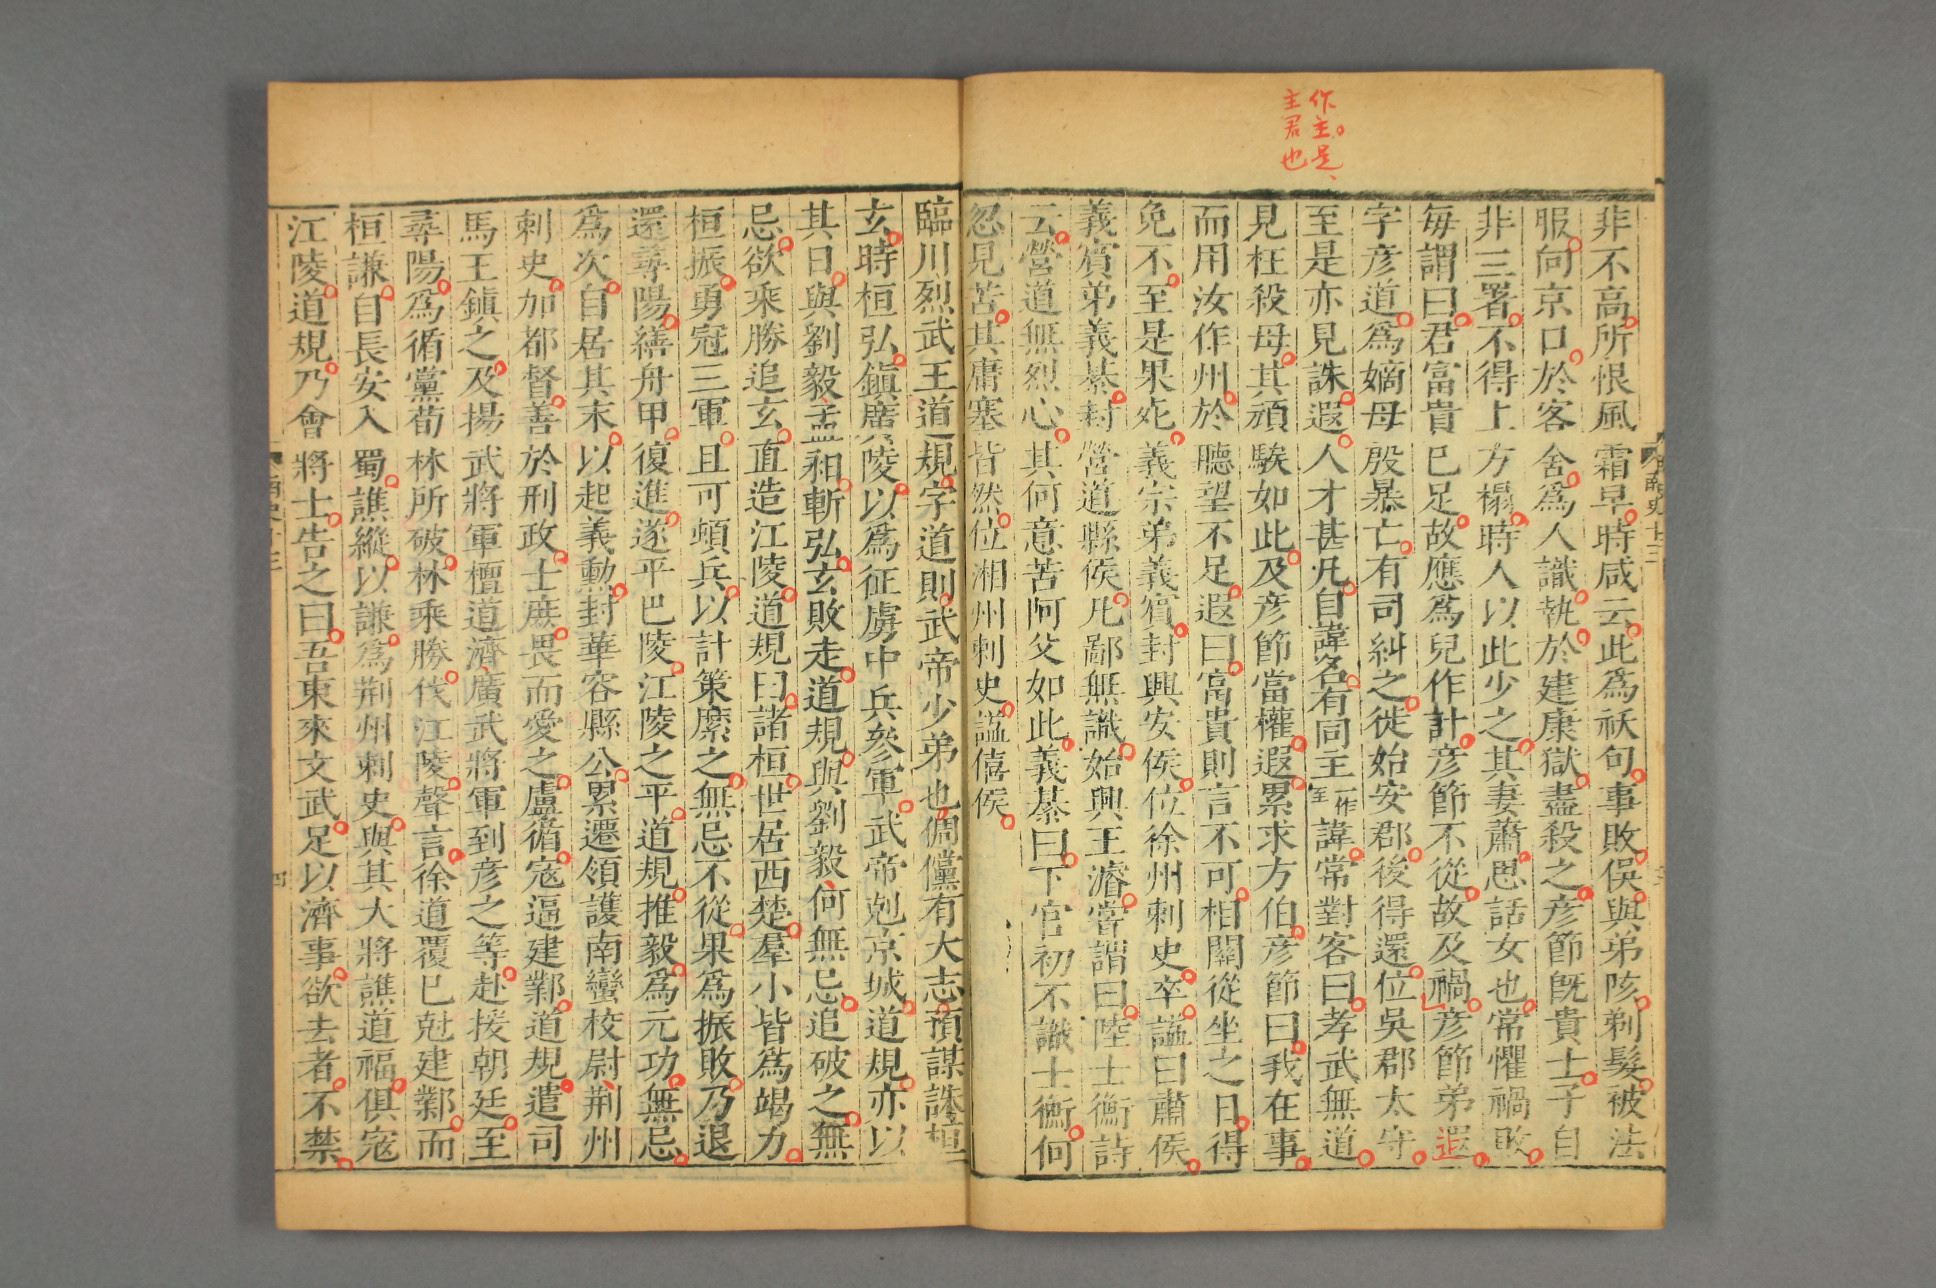 作主是、
主君也
非不高所恨風霜早時咸云此爲祅句事敗俣與弟陔剃髮被法
服向京口於客舍爲人識執於建康獄盡殺之彦節旣貴士子自
非三署不得上方榻時人以此少之其妻蕭思話女也常懼禍敗
每謂曰君富貴已足故應爲兒作計彦節不從故及禍彦節弟遐
字彦道爲嫡母殷暴亡有司糾之徙始安郡後得還位吳郡太守
至是亦見誅遐人才甚凡自諱名有同主一作至諱常對客曰孝武無道
見枉殺母其頑騃如此及彦節當權遐累求方伯彦節曰我在事
而用汝作州於聽望不足遐曰富貴則言不可相關從坐之日得
免不至是果死義宗弟義賓封興安侯位徐州刺史卒謚曰肅侯
義賓弟義綦封營道縣侯凡鄙無識始興王濬嘗謂曰陸士衡詩
云營道無烈心其何意苦阿父如此義綦曰下官初不識士衡何
忽見苦其庸塞皆然位湘州刺史謚僖侯
臨川烈武王道規字道則武帝少弟也倜儻有大志預謀誅桓
玄時桓弘鎮廣陵以爲征虜中兵參軍武帝剋京城道規亦以
其日與劉毅孟昶斬弘玄敗走道規與劉毅何無忌追破之無
忌欲乘勝追玄直造江陵道規曰諸桓世居西楚羣小皆爲竭力
桓振勇冠三軍且可頓兵以計策縻之無忌不從果爲振敗乃退
還尋陽繕舟甲復進遂平巴陵江陵之平道規推毅爲元功無忌
爲次自居其末以起義勳封華容縣公累遷領護南蠻校尉荆州
刺史加都督善於刑政士庶畏而愛之盧循寇逼建鄴道規遣司
馬王鎮之及揚武將軍檀道濟廣武將軍到彦之等赴援朝廷至
尋陽爲循黨荀林所破林乘勝伐江陵聲言徐道覆已尅建鄴而
桓謙自長安入蜀譙縱以謙爲荆州刺史與其大將譙道福俱寇
江陵道規乃會將士告之曰吾東來文武足以濟事欲去者不禁